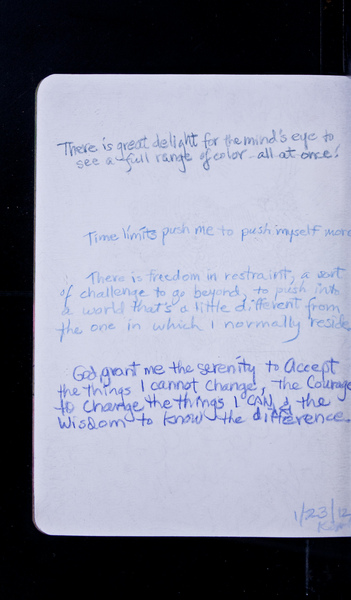 There is great delight for the mind's eye to
see a full range of color - all at once!
Time limits push me to push myself more
There is freedom in restraint, a sort
of challenge to go beyond, to push into
a world that's a little different from
the one in which I normally reside
God grant me the serenity to Accept
the things I cannot change, The Courage
to Change the things I CAN & the
Wisdom to know the difference.
1/23/12